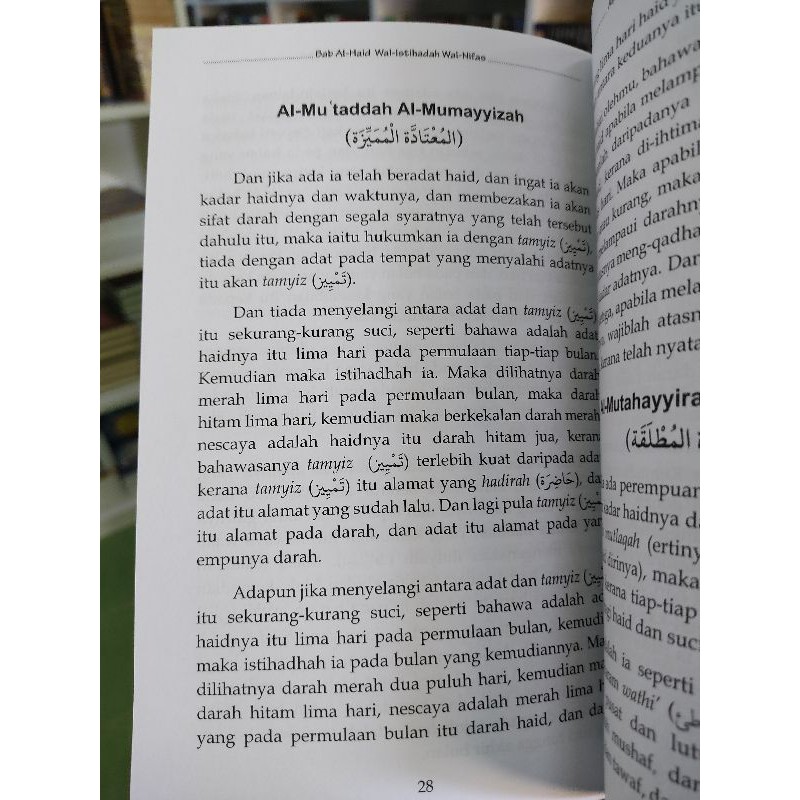 Bab Al-Haid Wal-Istihadah Wal-Nifas
Al-Mu'taddah Al-Mumayyizah
(المُعْتَادَّة الْمُمَيِّزَة)
Dan jika ada ia telah beradat haid, dan ingat ia akan
kadar haidnya dan waktunya, dan membezakan ia akan
sifat darah dengan segala syaratnya yang telah tersebut
dahulu itu, maka iaitu hukumkan ia dengan tamyiz (تَمْيِيز),
tiada dengan adat pada tempat yang menyalahi adatnya
itu akan tamyiz (تَمْيِيز).
Dan tiada menyelangi antara adat dan tamyiz (تَمْيِيز)
itu sekurang-kurang suci, seperti bahawa adalah adat
haidnya itu lima hari pada permulaan tiap-tiap bulan.
Kemudian maka istihadhah ia. Maka dilihatnya darah
merah lima hari pada permulaan bulan, maka darah
hitam lima hari, kemudian maka berkekalan darah merah
nescaya adalah haidnya itu darah hitam jua, kerana
bahawasanya tamyiz (تَمْيِيز) terlebih kuat daripada adat
kerana tamyiz (تَمْيِيز) itu alamat yang hadirah (حَاضِرَة), da
adat itu alamat yang sudah lalu. Dan lagi pula tamyiz (تَمْيِيز
itu alamat pada darah, dan adat itu alamat pada yan
empunya darah.
Adapun jika menyelangi antara adat dan tamyiz (تَمْيِيز
itu sekurang-kurang suci, seperti bahawa adalah ad
haidnya itu lima hari pada permulaan bulan, kemudi
maka istihadhah ia pada bulan yang kemudiannya. Ma
dilihatnya darah merah dua puluh hari, kemudian ma
darah hitam lima hari, nescaya adalah merah lima h
yang pada permulaan bulan itu darah haid, dan da
28
lima hari haid
ara keduanya itu
olehmu, bahawa
apabila melamp
daripadanya
kerana di-ihtima
hari. Maka apabil
au kurang, maka
melampaui darahn
snya meng-qadha
dar adatnya. Dan
ga, apabila mela
wajiblah atasn
erana telah nyata
Al-Mutahayyira
(ة المُطْلَقَة
ada perempuan
kadar haidnya d
mutlaqah (ertiny
dirinya), maka
kerana tiap-tiap
gi haid dan suci
lah ia seperti
ram wathi' (وَطْئ
pusat dan lut
mushaf, dan
tawaf, d